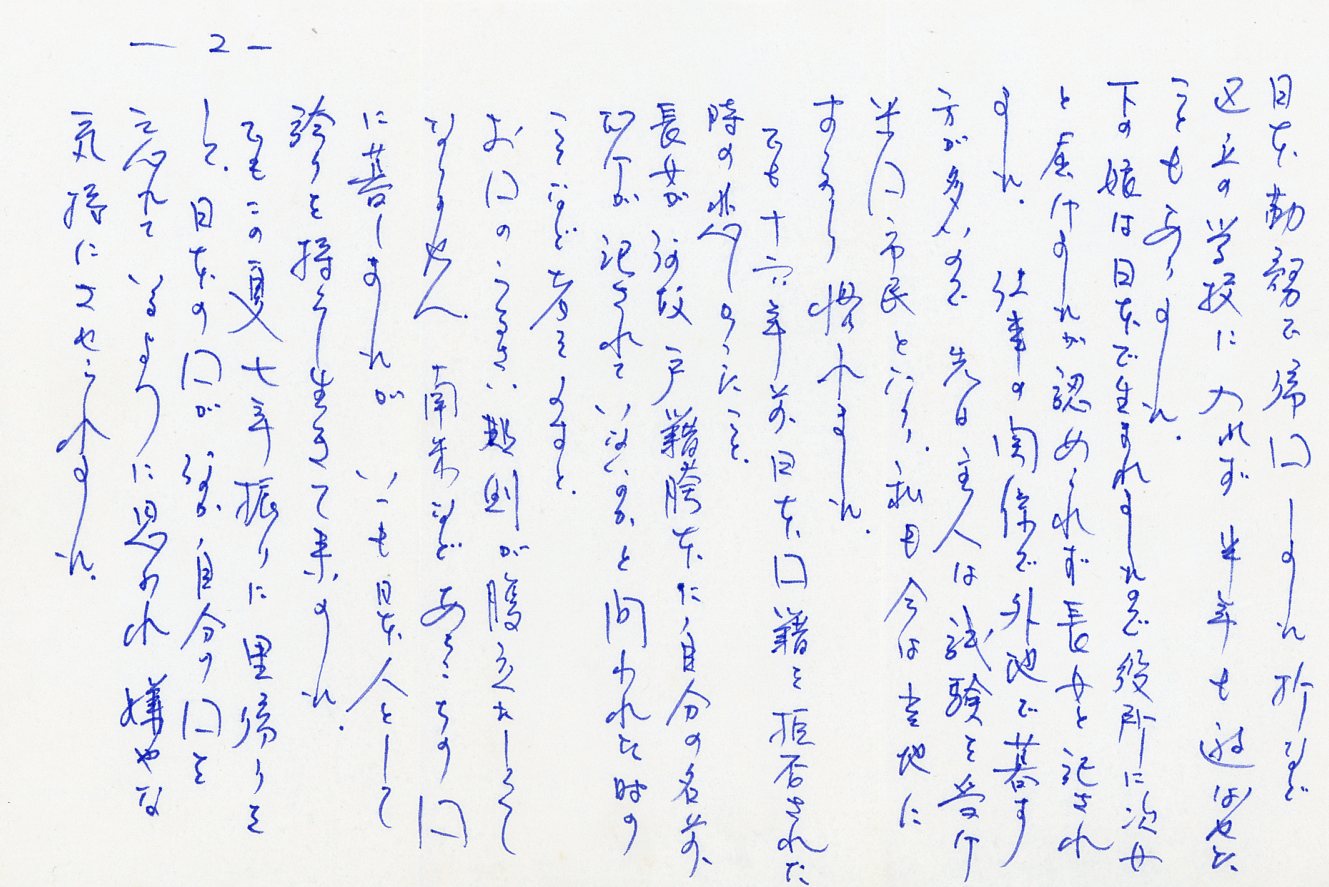 — 2 —
日本勤務で帰国しました折など
区立の学校に入れず半年も遊ばせた
こともありました。
下の娘は日本で生まれましたので役所に次女
と届けましたが認められず長女と記され
ました。仕事の関係で外地で暮す
方が多いので先日主人は試験を受け
米国市民となり、私も今は当地に
すっかり慣れました。
でも十六年前日本国籍を拒否された
時の悲しかったこと、
長女が何故戸籍謄本に自分の名前、
が記されていないのかと問われた時の
ことなど考えますと、
お国のうるさい規則が腹立たしくて
なりません。南米などあちこちの国
に暮しましたが いつも日本人として
誇りを持って生きて来ました。
でもこの夏七年振りに里帰りを
して、日本の国が何か自分の国を
忘れているように思われ嫌やな
気持にさせられました。